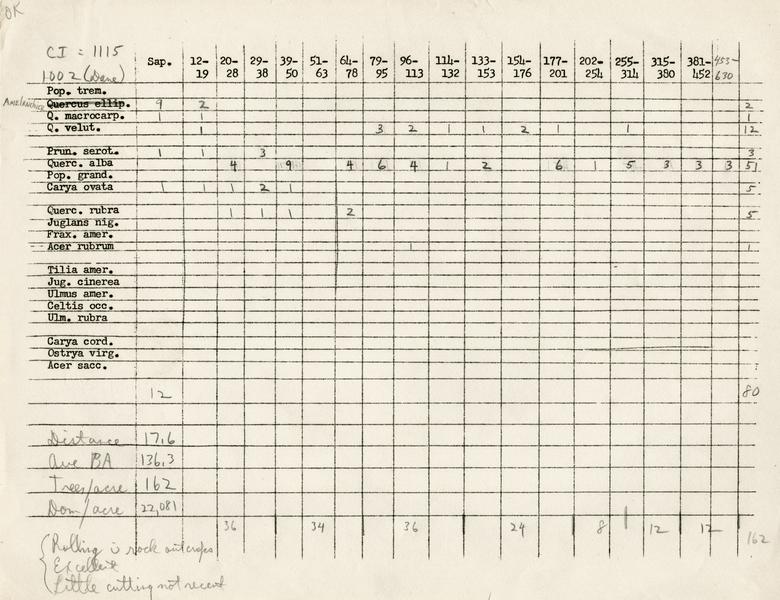 OK
CI = 1115
1002 (Dane)
Sap. 12-19 20-28 29-38 39-50 51-63 64-78 79-95 96-113 114-132 133-153 154-176 177-201 202-254 255-314 315-380 381-452 453-630
Pop. trem.
Amelanchier Quercus ellip. 9 2 2
Q. macrocarp. 1 1 1
Q. velut. 1 3 2 1 1 2 1 1 12
Prun. serot. 1 1 3 3
Querc. alba 4 9 4 6 4 1 2 6 1 5 3 3 3 51
Pop. grand.
Carya ovata 1 1 1 2 1 5
Querc. rubra 1 1 1 2 5
Juglans nig.
Frax. amer.
Acer rubrum 1 1
Tilia amer.
Jug. cinerea
Ulmus amer.
Celtis occ.
Ulm. rubra
Carya cord.
Ostrya virg.
Acer sacc.
12 80
Distance 17.6
Ave BA 136.3
Trees/acre 162
Dom/acre 22,081
36 34 36 24 8 12 12 162
Rolling c̄ rock outcrops
Excellent
Little cutting not recent